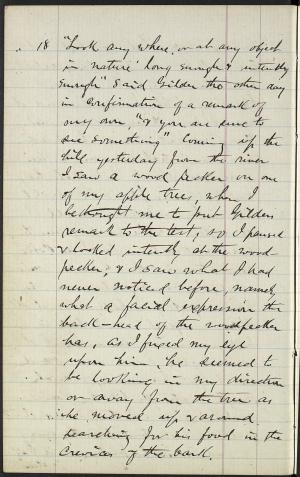 18 "Look any where, or at any object
in nature long enough & intently
enough" said Gilder the other day
in confirmation of a remark of
my own, "& you are sure to
see something" Coming up the
hill yesterday from the river
I saw a wood pecker on one
of my apple trees, when I
bethought me to put Gilders
remark to the test, so I paused
& looked intently at the wood
pecker, & I saw what I had
never noticed before, namely
what a facial expression the
back-head of the woodpecker
has, as I fixed my eye
upon him, he seemed to
be looking in my direction
or away from the tree as
he moved up & around
searching for his food in the
crevices of the bark.